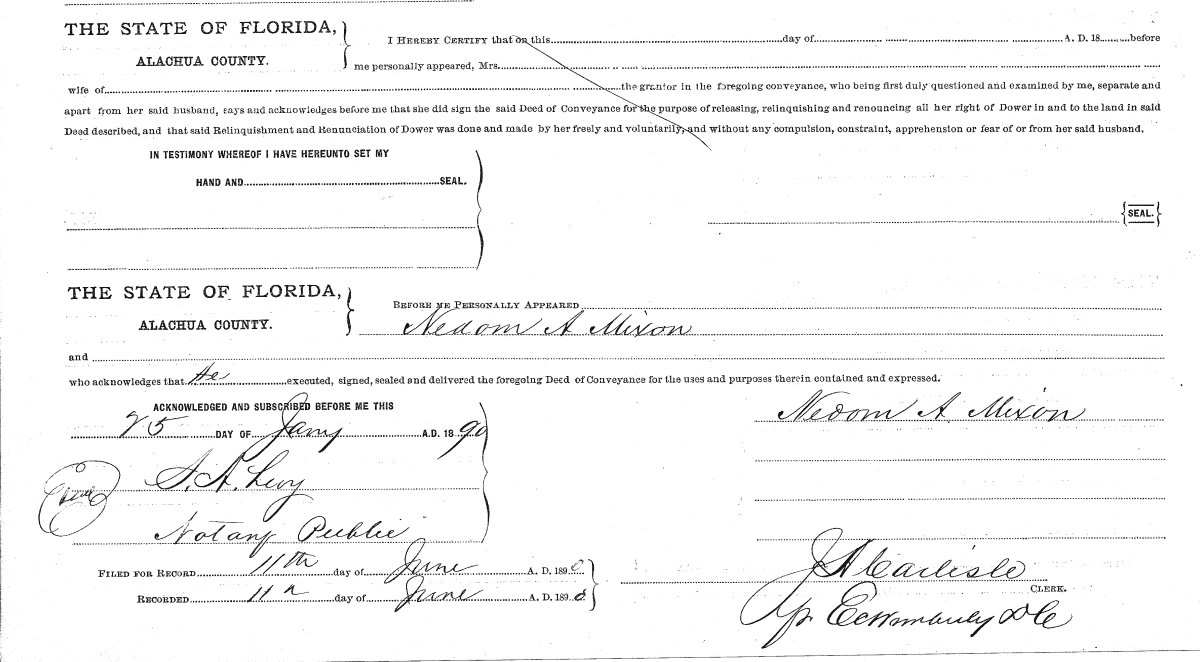 THE STATE OF FLORIDA,
ALACHUA COUNTY.
I HEREBY CERTIFY that on this day of A. D. 18 before
me personally appeared, Mrs.
wife of the grantor in the foregoing conveyance, who being first duly questioned and examined by me, separate and
apart from her said husband, says and acknowledges before me that she did sign the said Deed of Conveyance for the purpose of releasing, relinquishing and renouncing all her right of Dower in and to the land in said
Deed described, and that said Relinquishment and Renunciation of Dower was done and made by her freely and voluntarily, and without any compulsion, constraint, apprehension or fear of or from her said husband.
IN TESTIMONY WHEREOF I HAVE HEREUNTO SET MY
HAND AND SEAL.
SEAL.
THE STATE OF FLORIDA,
ALACHUA COUNTY.
BEFORE ME PERSONALLY APPEARED
Nedom A Mixon
and
who acknowledges that He executed, signed, sealed and delivered the foregoing Deed of Conveyance for the uses and purposes therein contained and expressed.
ACKNOWLEDGED AND SUBSCRIBED BEFORE ME THIS
25 DAY OF Jany A.D. 1890
Nedom A Mixon
S. A. Levy
Seal
Notary Public
FILED FOR RECORD 11th day of June A. D. 1890
J A Carlisle
CLERK.
RECORDED 11th day of June A. D. 1890
pr DC